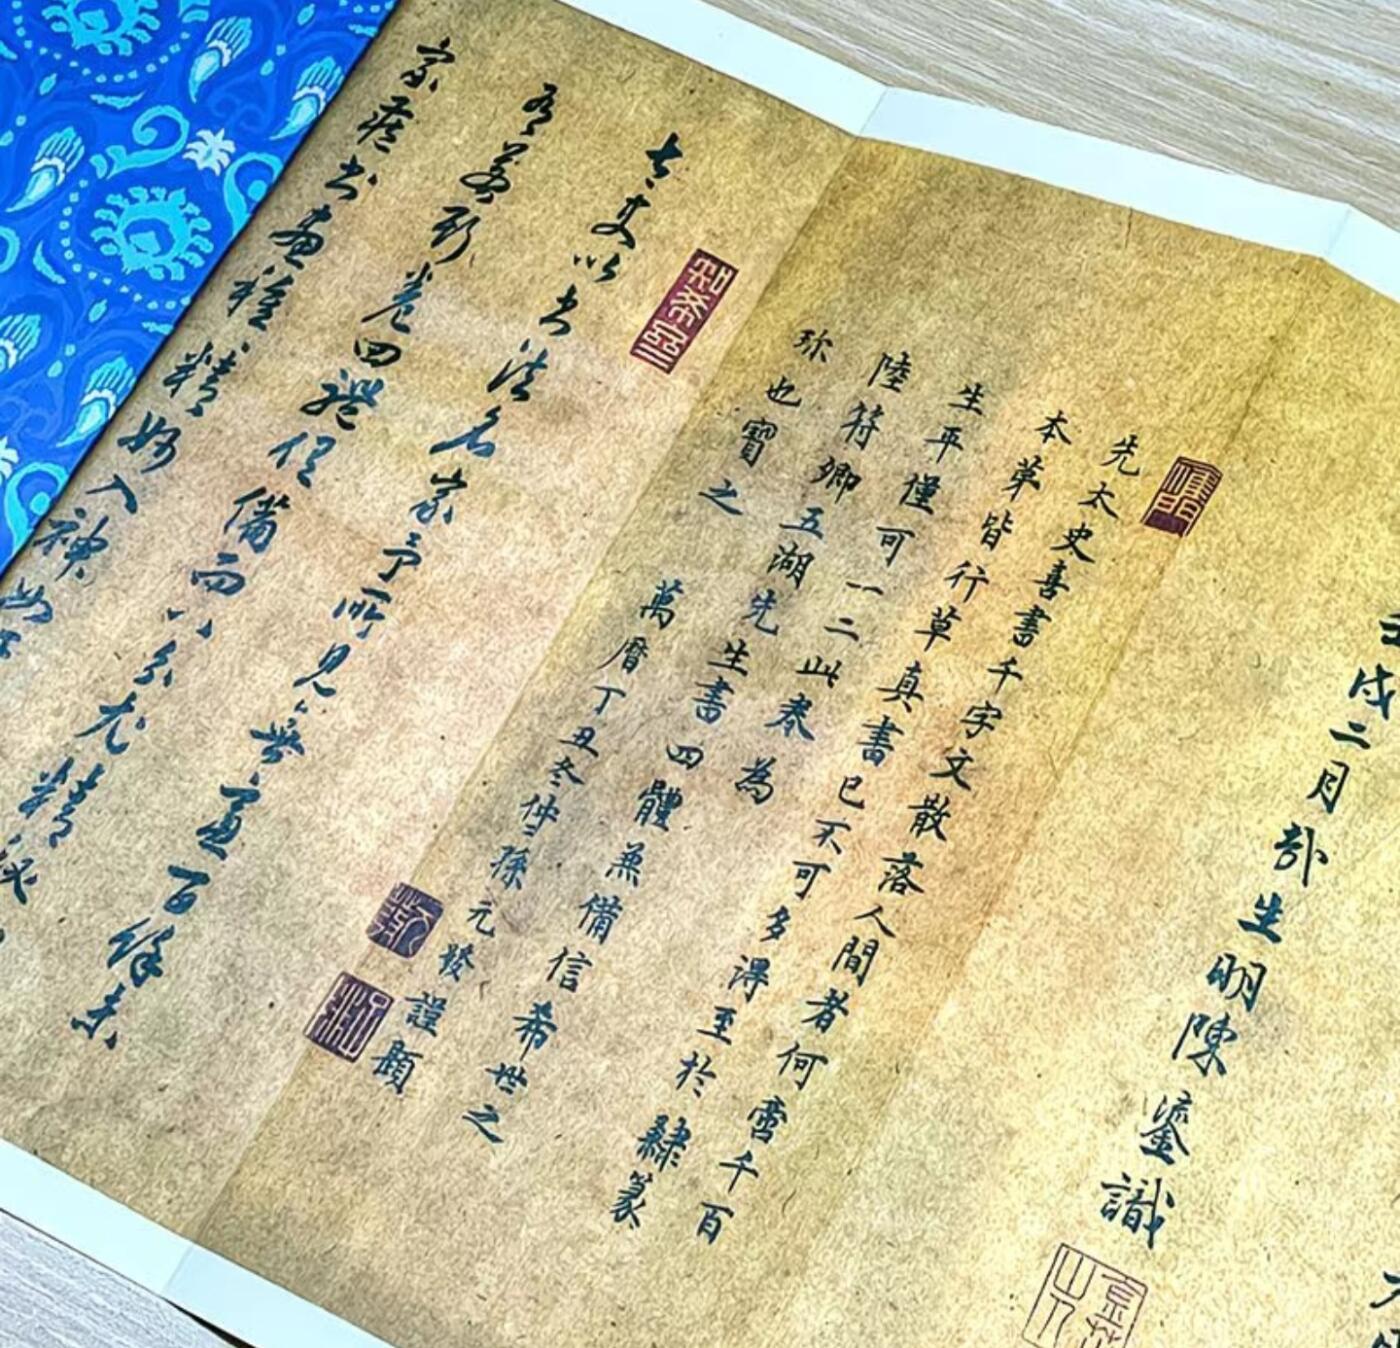 壬戌二月哉生明陳鎏識
先太史喜書千字文散落人間者何啻千百
本第皆行草真書已不可多得至於隸篆
生平僅可一二此卷為
陸符卿五湖先生書四體兼備信希世之
珎也寶之
萬曆丁丑冬仲孫元發謹題
太史以書法名家予所見無慮百餘未
有若斯卷四體俱備而八分尤精
家藏書畫種種精妙入神此